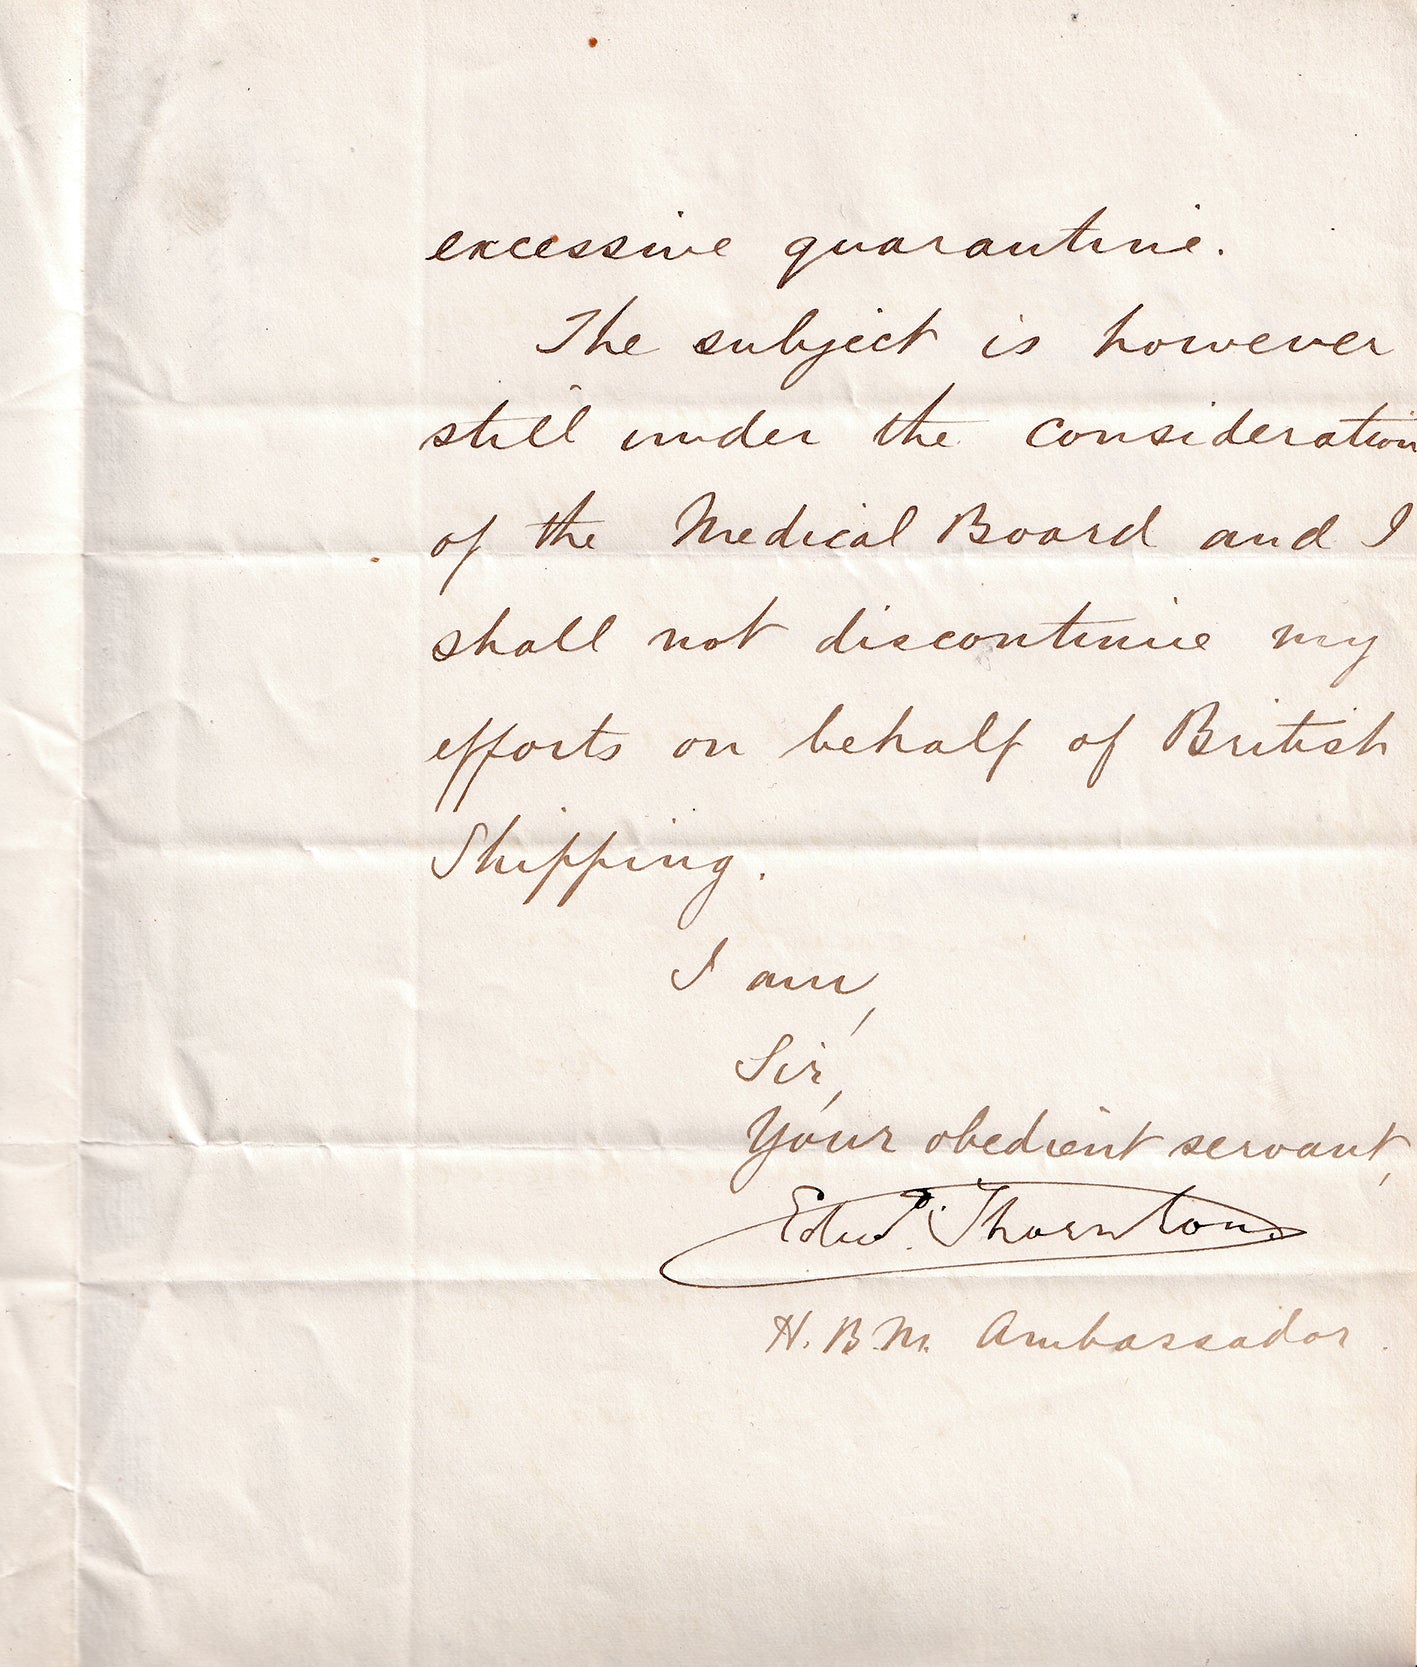 excessive quarantine.
The subject is however
still under the consideration
of the Medical Board and I
shall not discontinue my
efforts on behalf of British
Shipping.
I am,
Sir,
Your obedient servant,
Edwd. Thornton.
H.B.M. Ambassador.